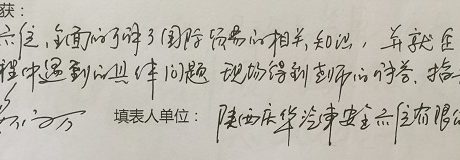 获：
全面的了解了国际贸易的相关知识，并就在
程中遇到的具体问题 现场得到老师的解答、指
填表人单位： 陕西庆华汽车安全系统有限公